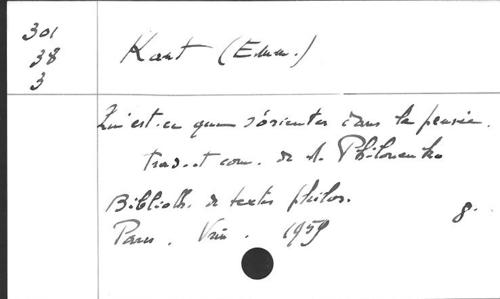 301
38
3
Kant (Emm.)
Qu'est-ce que s'orienter dans la pensée.
trad. et com. de A. Philonenko
Biblioth. de textes philos.
Paris. Vrin. 1959 8.